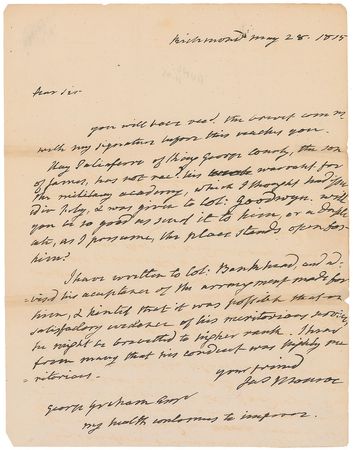 Richmond May 28. 1815
Dear Sir
you will have recd. the brevet comn
with my signature before this reaches you.
Hay Taliaferro of King George County, the son
of James, has not recd. his warrant for
the military academy, which I thought had
was given to Col: Goodwyn. will
you be so good as send it to him, or a dupli
cate, as I presume, the place stands open for
him?
I have written to Col: Bankhead, and ad:
vised his acceptance of the arrangment made for
him, & hinted that it was possible that on
satisfactory evidence of his meritorious services,
he might be brevetted to higher rank. I hear
from many that his conduct was highly me
ritorious.
your friend
Jas Monroe
George Graham Esqr
my health continues to improve.